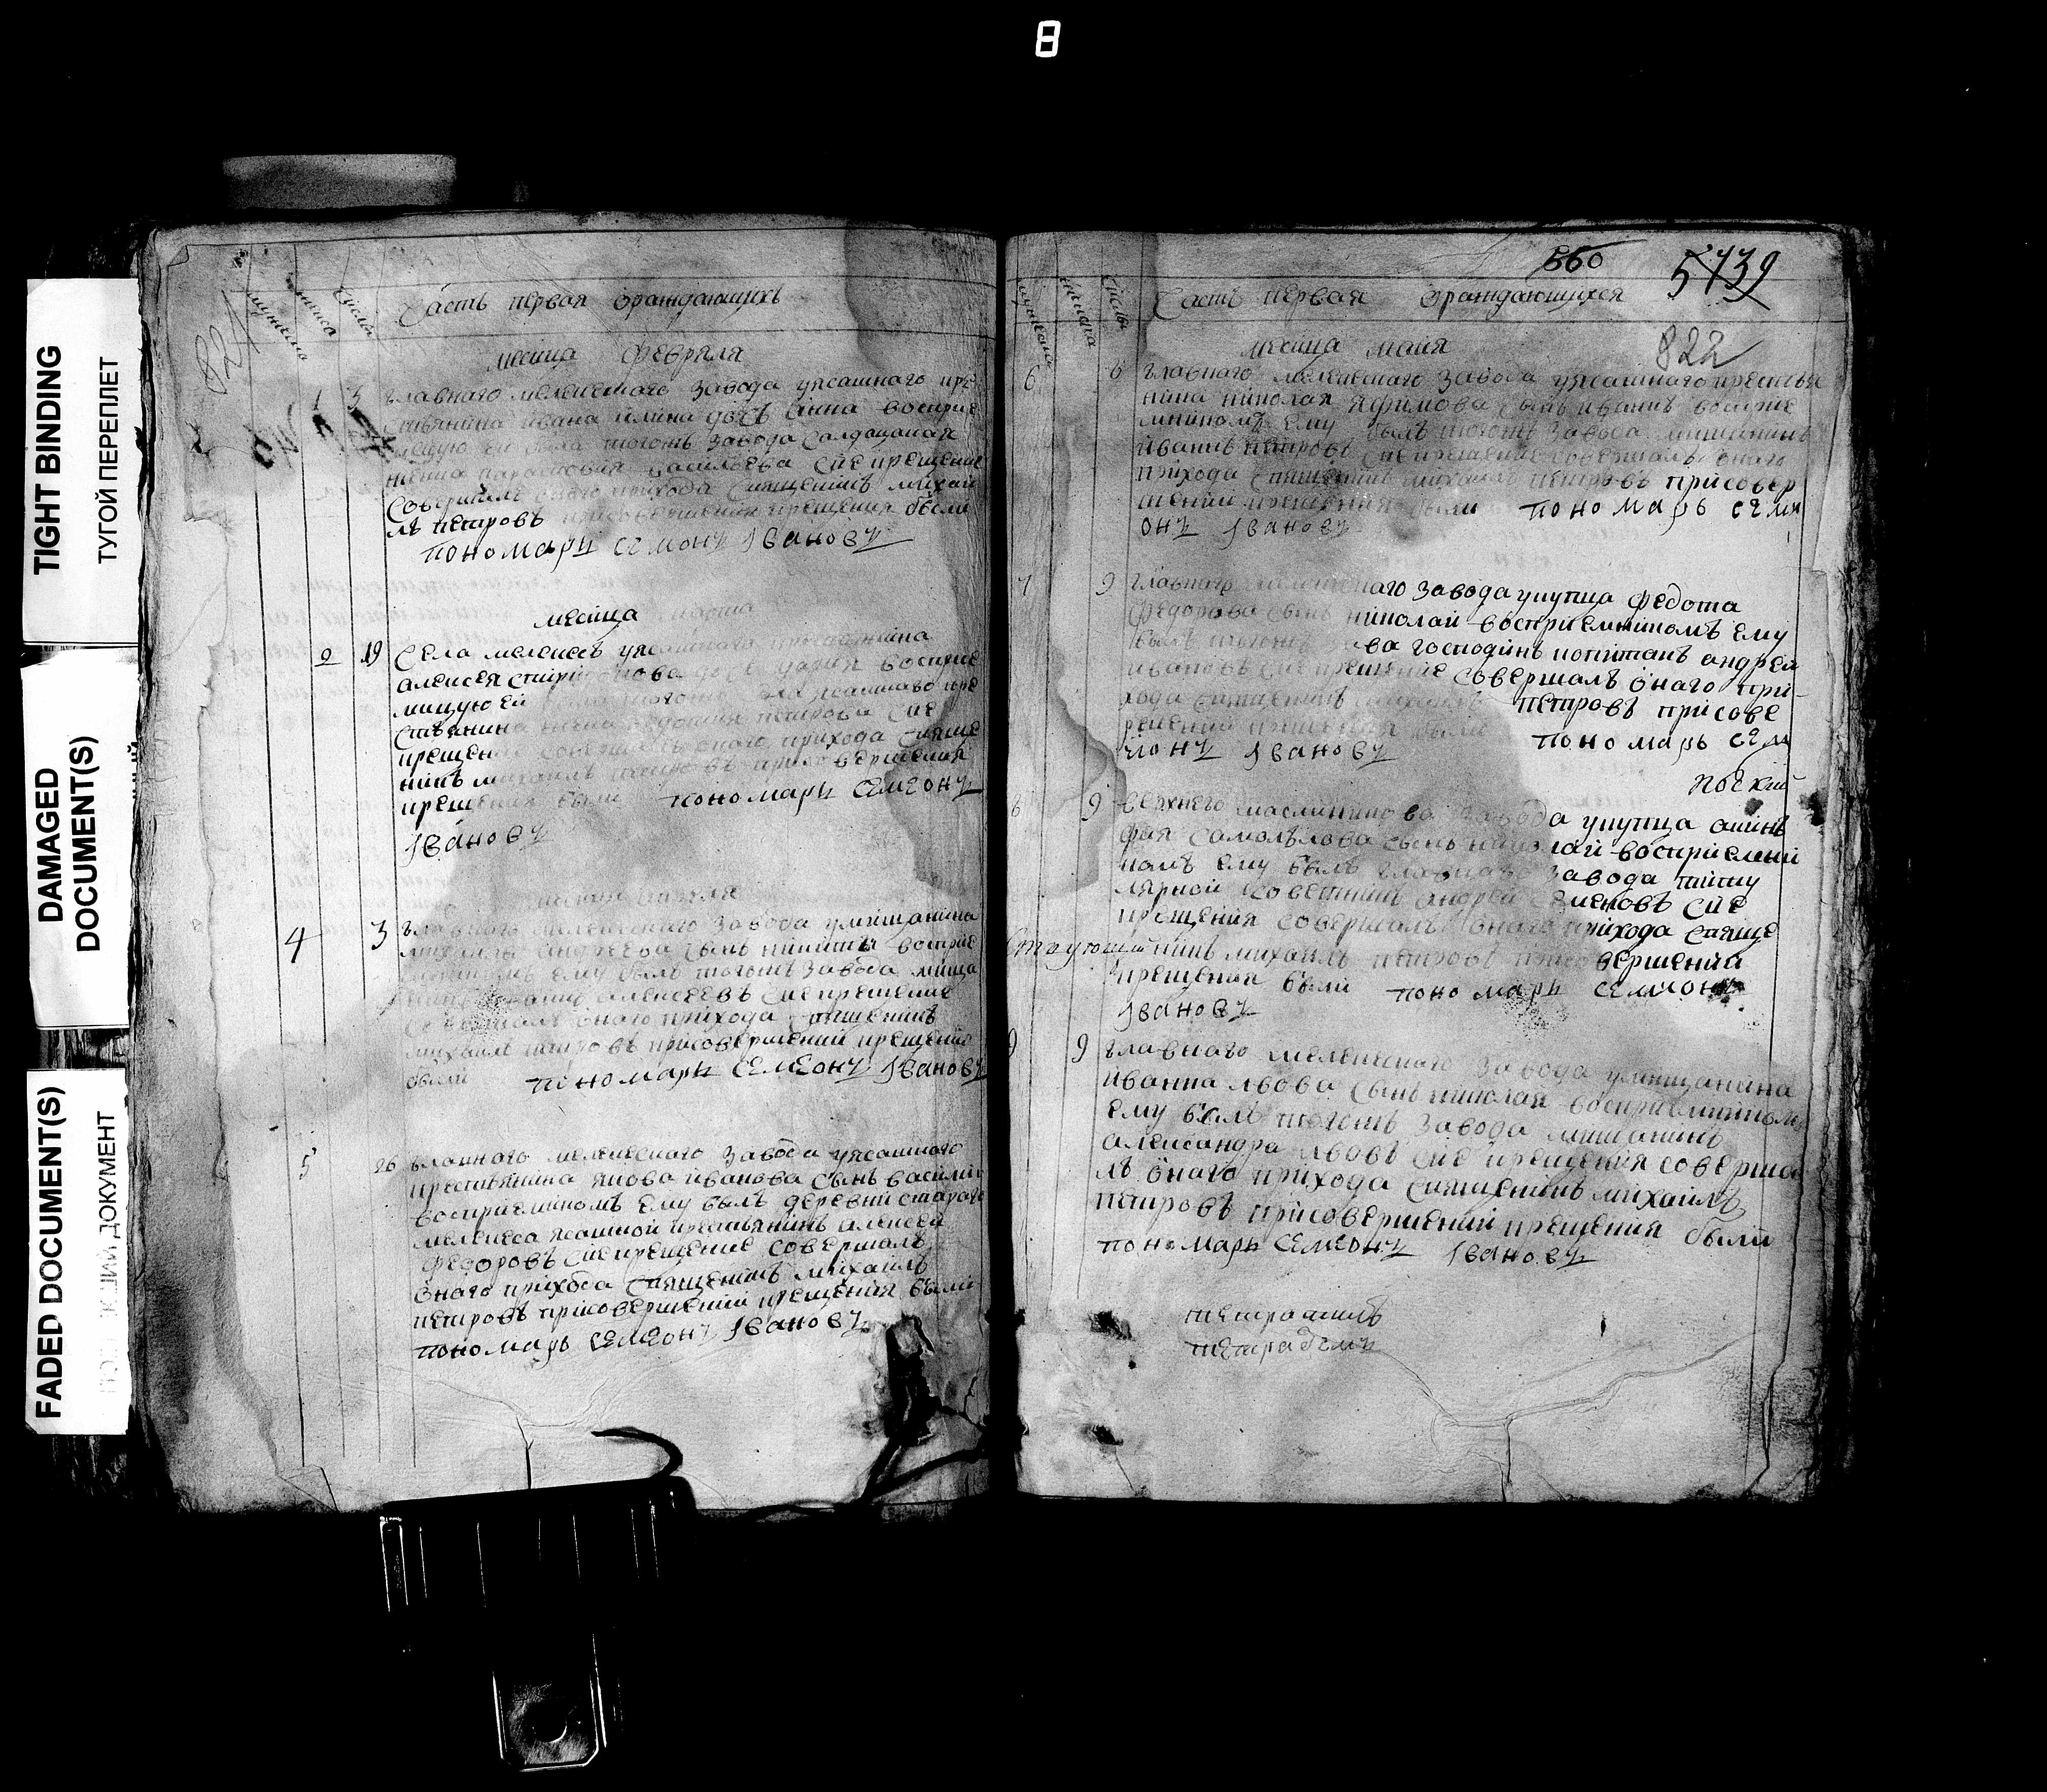 8
TIGHT BINDING
ТУГОЙ ПЕРЕПЛЕТ
DAMAGED
DOCUMENT(S)
FADED DOCUMENT(S)
ДОКУМЕНТ
821
мужиска
женска
Числы
Часть первая ѡраждающихъ
месяца Февраля
1 3
главного мелекескаго завода уясашнаго кре
стьянина ивана илина дочь анна восприе
мещую ей была тогожъ завода салдацкая
женка парасковия васильева сие крещение
совершалъ онаго прихода священикъ михаи
лъ петровъ присовершении крещения были
пономарь семонъ Iвановъ
месяца марта
2 19
Села мелекесъ уясашнаго крестьянина
алексея спиридонова дочь дария восприе
мицую ей была тогожъ села ясашнаго кре
стьянина жена федосия петрова сие
крещение совершалъ онаго прихода свяще
никъ михаилъ петровъ присовершении
крещения были пономарь семеонъ
Iвановъ
месяца апреля
4 3
главного мелекескаго завода умещанина
михаила андреева сынъ никита восприе
емникомъ ему былъ тогожъ завода меща
нинъ алексеевъ сие крещение
совершалъ онаго прихода священикъ
михаилъ петровъ присовершении крещения
были пономарь семеонъ Iвановъ
5 26
главного мелекескаго завода уясашного
крестьянина якова иванова сынъ василий
восприемникомъ ему былъ деревни стараго
мелекеса ясашной крестьянинъ алексей
федоровъ сие крещение совершалъ
онаго прихода священикъ михаилъ
петровъ присовершении крещения были
пономарь семеонъ Iвановъ
860
5439
822
мужиска
женска
Числы
Часть первая ѡраждающихся
месяца майя
6 6
главного мелекескаго завода уясашнаго крестья
нина николая яфимова сынъ иванъ восприе
мникомъ ему былъ тогожъ завода мещанинъ
иванъ петровъ сие крещение совершалъ онаго
прихода священикъ михаилъ петровъ присовер
шении крещения были пономарь семи
онъ Iвановъ
7 9
главнаго мелекескаго завода укупца федота
федорова сынъ николай восприемникомъ ему
былъ тогожъ завода господинъ копитанъ андрей
ивановъ сие крещение совершалъ онаго при-
хода священикъ михаилъ петровъ присове
ршении крещения были пономарь сем
ионъ Iвановъ
8 9
верхнего завода укупца
самойлова сынъ николай восприемни
комъ ему былъ главнаго завода титу
лярной советникъ андрей семеновъ сие
крещения совершалъ онаго прихода свяще
никъ михаилъ петровъ присовершений
крещения были пономарь семионъ
Iвановъ
9 9
главнаго мелекескаго завода умещанина
иванна львова сынъ николай восприемникомъ
ему былъ тогожъ завода мещанинъ
александра львовъ сие крещения соверша
лъ онаго прихода священикъ михаилъ
петровъ присовершений крещения были
пономарь семеонъ Iвановъ